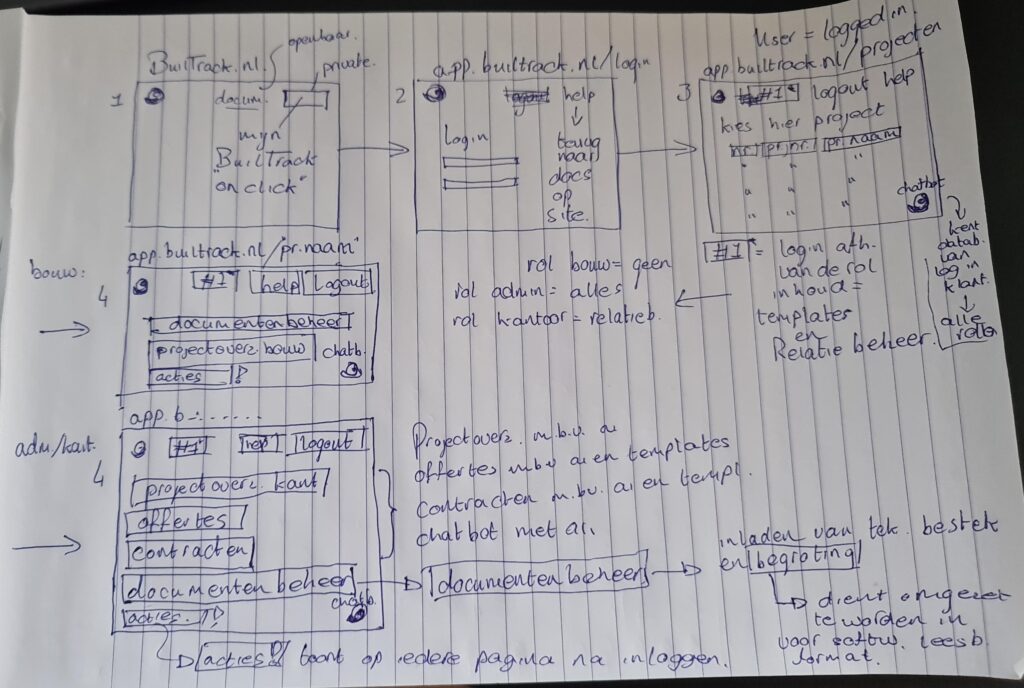 User = logged in.
openbaar.
private.
BuilTrack.nl
1
docum.
mijn
"BuilTrack
on click"
app.builtrack.nl/login
2
help
Login
terug
naar
docs
op
site.
app.builtrack.nl/projecten
3
#1 logout help
kies hier project
nr. prj.nr. pr.naam
" " "
" " "
" " "
chatbot
kent
datab.
van
log in
klant.
alle
rollen
#1 = login afh.
van de rol
inhoud =
templates
en
Relatie beheer.
rol bouw = geen
rol admin = alles
rol kantoor = relatieb.
app.builtrack.nl/"pr.naam"
bouw:
4
#1 help Logout
documentenbeheer
projectoverz. bouw
chatb.
acties !
app.b -:......
adm/kant.
4
#1 help logout
projectoverz. kant
offertes
contracten
documentenbeheer
chatb.
acties. !
Projectoverz. m.b.v. ai
offertes m.b.v ai en templates
contracten m.b.v. ai en templ.
chatbot met ai.
documentenbeheer
inladen van tek. bestek
en begroting
dient omgezet
te worden in
voor softw. leesb.
format.
acties! toont op iedere pagina na inloggen.